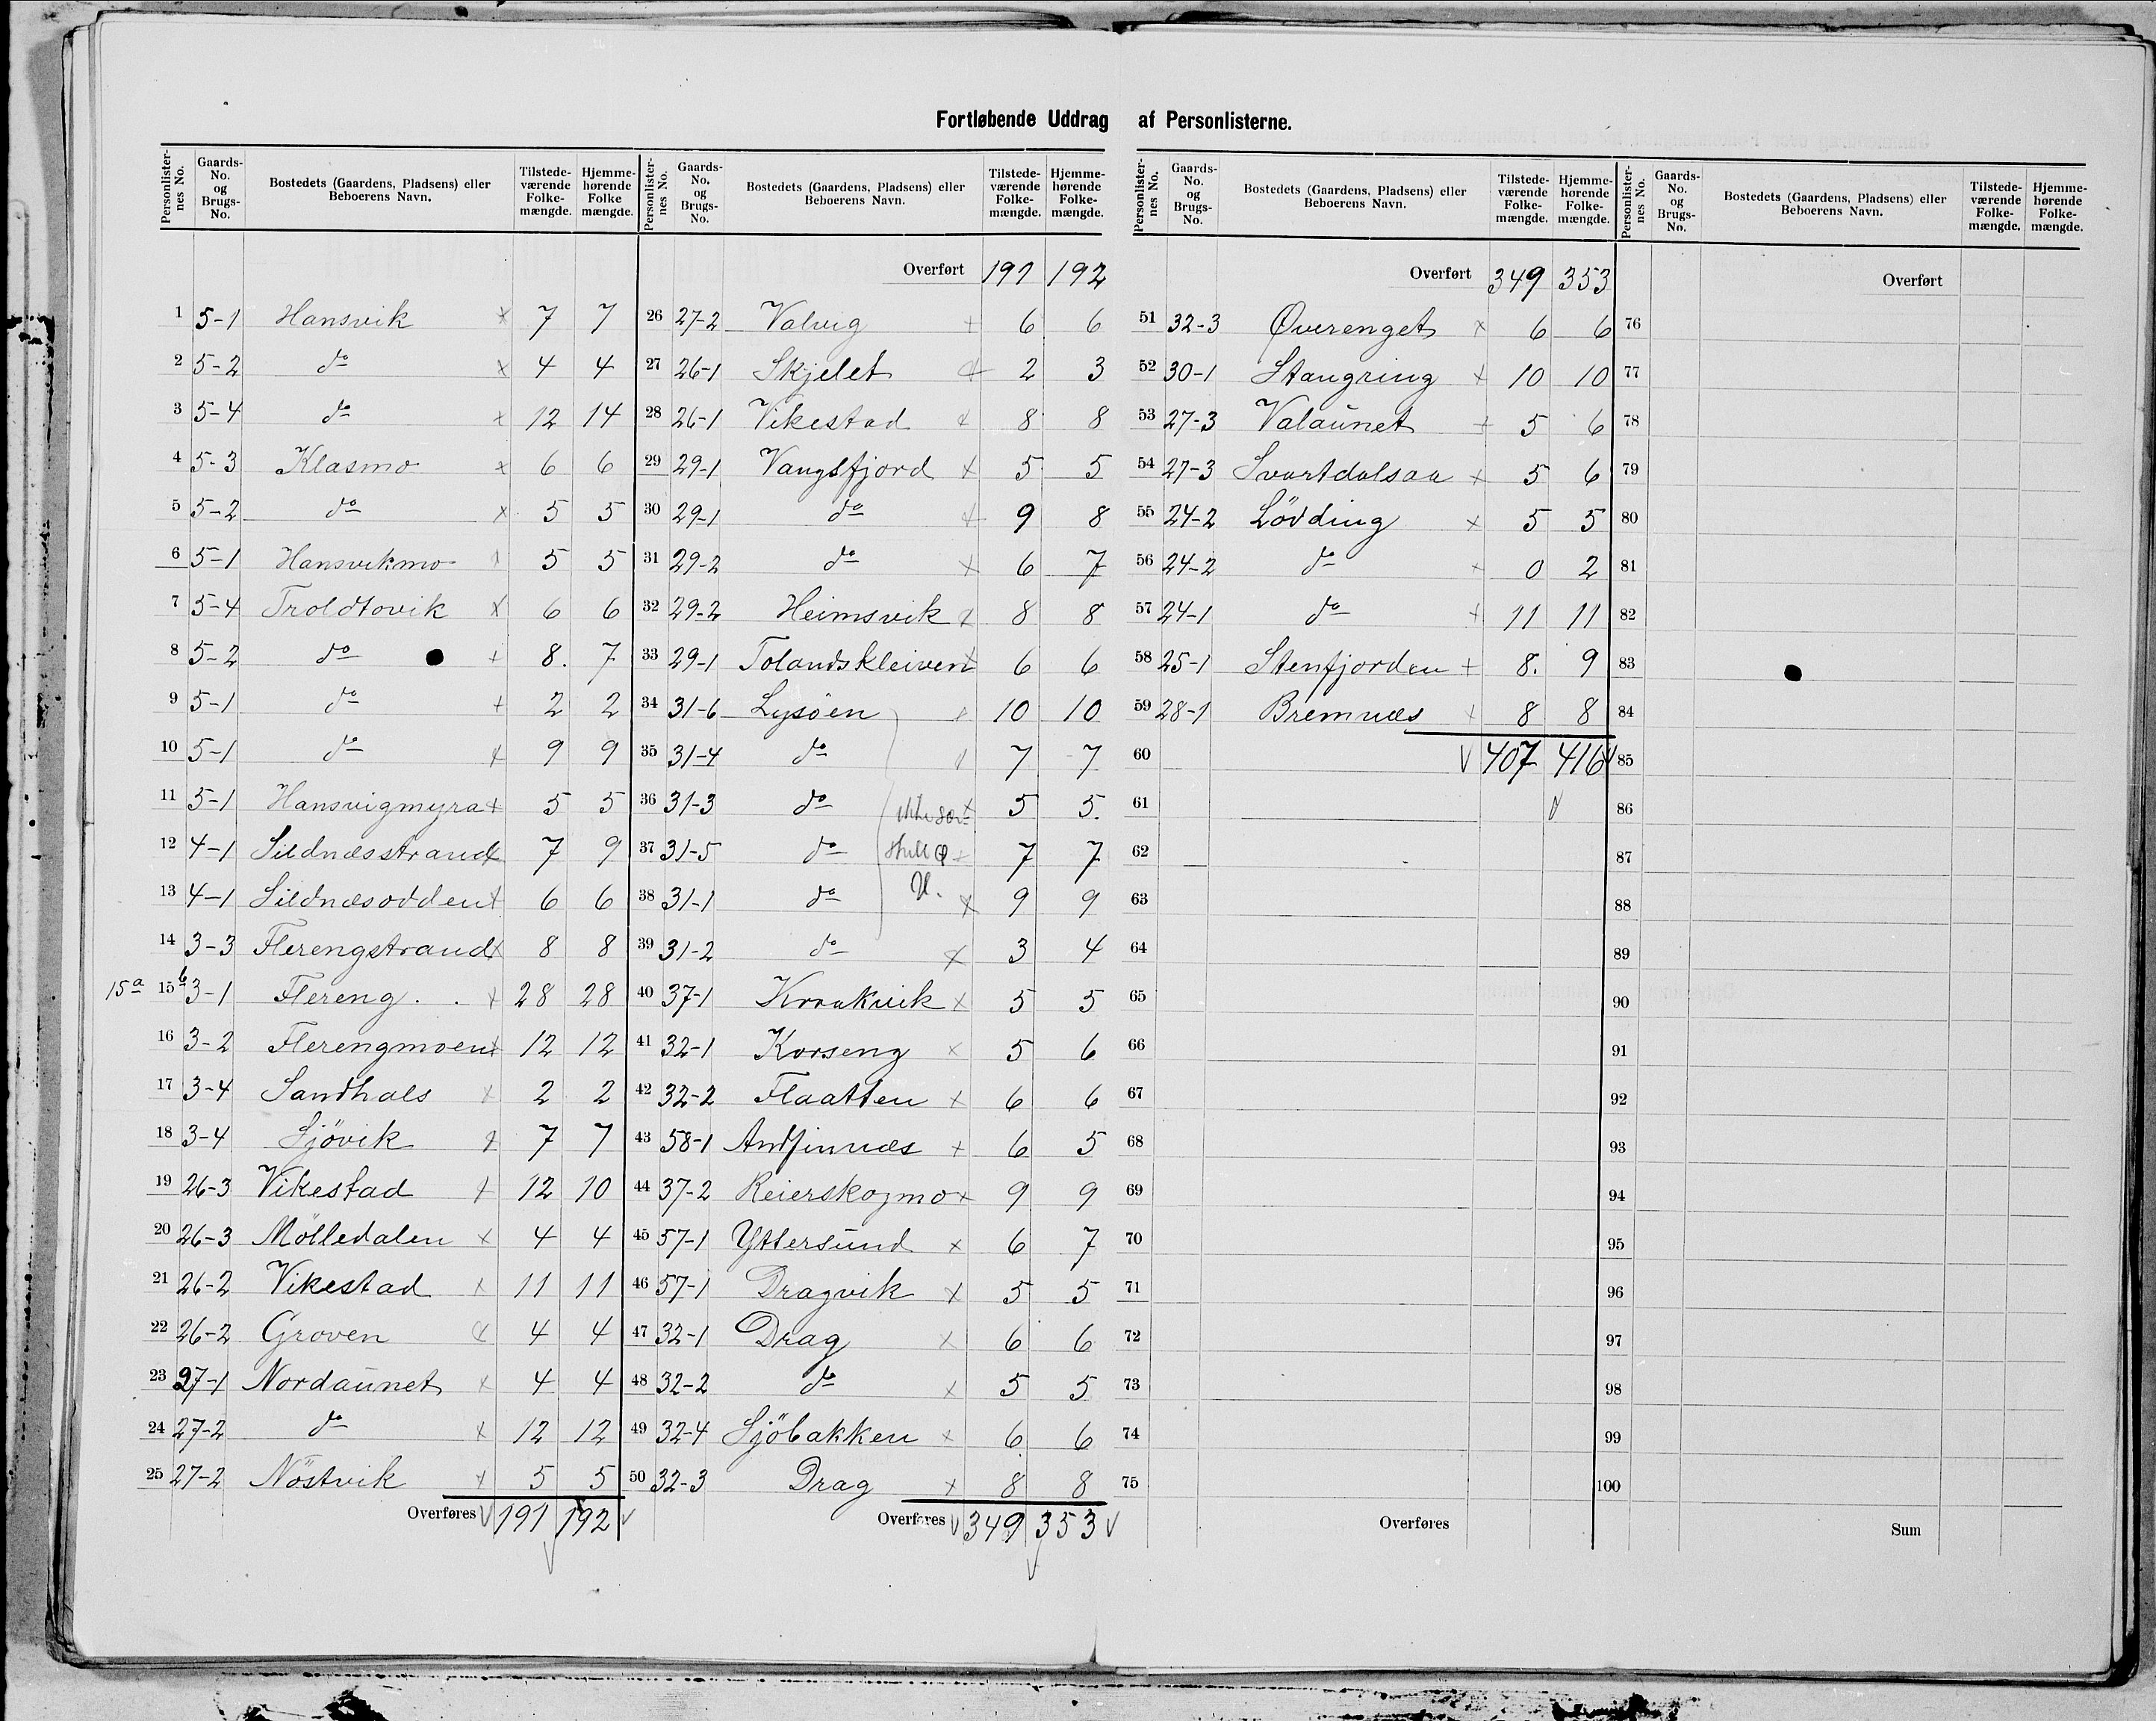 Fortløbende Uddrag af Personlisterne.
Personlisternes No. Gaards-No. og Brugs-No. Bostedets (Gaardens, Pladsens) eller Beboerens Navn. Tilstedeværende Folkemængde. Hjemmehørende Folkemængde.
1 5-1 Hansvik x 7 7
2 5-2 do x 4 4
3 5-4 do x 12 14
4 5-3 Klasmo x 6 6
5 5-2 do x 5 5
6 5-1 Hansvikmo 5 5
7 5-4 Troldtovik x 6 6
8 5-2 do + 8. 7
9 5-1 do + 2 2
10 5-1 do x 9 9
11 5-1 Hansvigmyra + 5 5
12 4-1 Sildnæsstrand x 7 9
13 4-1 Sildnæsodden x 6 6
14 3-3 Flerengstrand x 8 8
15a 15b 3-1 Flereng . . x 28 28
16 3-2 Flerengmoen x 12 12
17 3-4 Sandhals x 2 2
18 3-4 Sjövik x 7 7
19 26-3 Vikestad x 12 10
20 26-3 Mölledalen x 4 4
21 26-2 Vikestad x 11 11
22 26-2 Groven x 4 4
23 27-1 Nordaunet x 4 4
24 27-2 do x 12 12
25 27-2 Nöstvik x 5 5
Overføres 191 192
Personlisternes No. Gaards-No. og Brugs-No. Bostedets (Gaardens, Pladsens) eller Beboerens Navn. Tilstedeværende Folkemængde. Hjemmehørende Folkemængde.
Overført 191 192
26 27-2 Valvig + 6 6
27 26-1 Skjelet x 2 3
28 26-1 Vikestad x 8 8
29 29-1 Vangsfjord x 5 5
30 29-1 do x 9 8
31 29-2 do x 6 7
32 29-2 Heimsvik x 8 8
33 29-1 Tolandskleiven x 6 6
34 31-6 Lysöen x 10 10
35 31-4 do 7 7
36 31-3 do x 5 5.
37 31-5 do + 7 7
38 31-1 do x 9 9
39 31-2 do x 3 4
40 37-1 Kraakvik x 5 5
41 32-1 Korseng x 5 6
42 32-2 Flaatten x 6 6
43 58-1 Andfinnæs + 6 5
44 37-2 Reierskogmo x 9 9
45 57-1 Yttersund x 6 7
46 57-1 Dragvik x 5 5
47 32-1 Drag x 6 6
48 32-2 do x 5 5
49 32-4 Sjöbakken x 6 6
50 32-3 Drag x 8 8
Overføres 349 353
Personlisternes No. Gaards-No. og Brugs-No. Bostedets (Gaardens, Pladsens) eller Beboerens Navn. Tilstedeværende Folkemængde. Hjemmehørende Folkemængde.
Overført 349 353
51 32-3 Øverenget x 6 6
52 30-1 Stangring + 10 10
53 27-3 Valaunet + 5 6
54 27-3 Svartdalsaa x 5 6
55 24-2 Lövding x 5 5
56 24-2 do + 0 2
57 24-1 do + 11 11
58 25-1 Stenfjorden + 8. 9
59 28-1 Bremnæs + 8 8
60 407 416
61
62
63
64
65
66
67
68
69
70
71
72
73
74
75
Overføres
Personlisternes No. Gaards-No. og Brugs-No. Bostedets (Gaardens, Pladsens) eller Beboerens Navn. Tilstedeværende Folkemængde. Hjemmehørende Folkemængde.
Overført
76
77
78
79
80
81
82
83
84
85
86
87
88
89
90
91
92
93
94
95
96
97
98
99
100
Sum